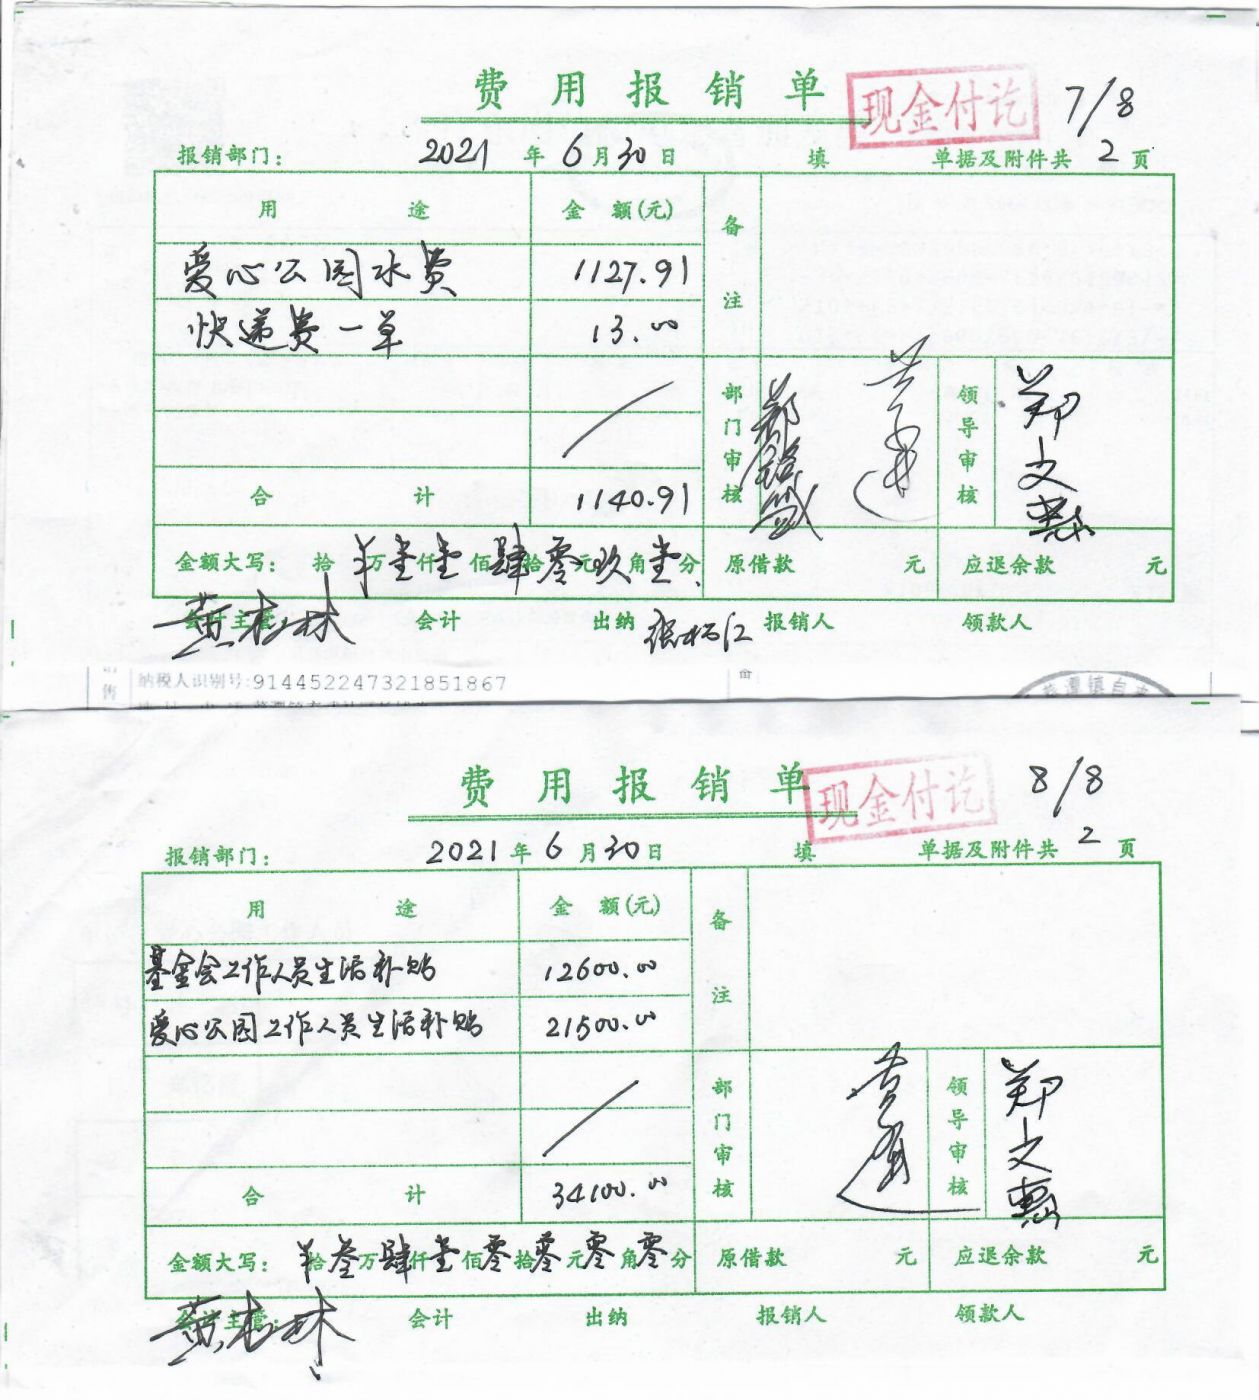 费用报销单 现金付讫 7/8
报销部门: 2021 年 6 月 30 日 填 单据及附件共 2 页
用途 金额(元) 备注
爱心公园水费 1127.91
快递费一单 13.00
部门审核 领导审核 郑文
合计 1140.91
金额大写: 拾 万壹仟壹佰肆拾零元玖角壹分 原借款 元 应退余款 元
会计主管: 会计 出纳 张 报销人 领款人
纳税人识别号:914452247321851867
费用报销单 现金付讫 8/8
报销部门: 2021 年 6 月 30 日 填 单据及附件共 2 页
用途 金额(元) 备注
基金会工作人员生活补贴 12600.00
爱心公园工作人员生活补贴 21500.00
部门审核 领导审核 郑文
合计 34100.00
金额大写: 拾叁万肆仟壹佰零拾零元零角零分 原借款 元 应退余款 元
会计主管: 会计 出纳 报销人 领款人